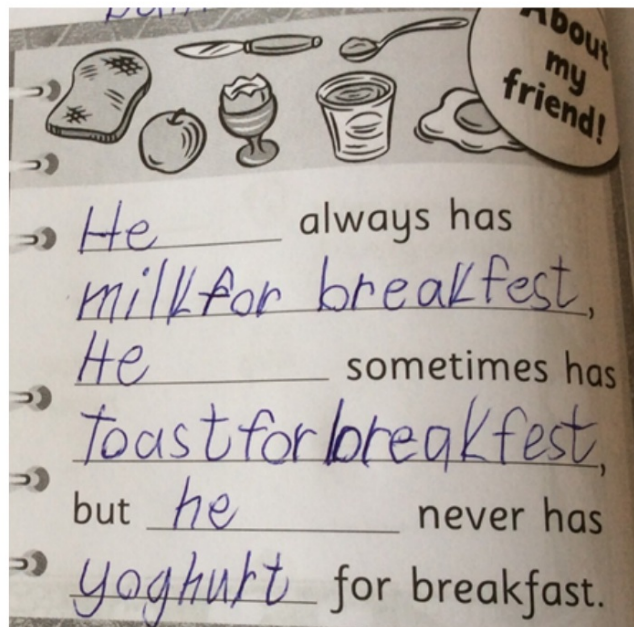 About
my
friend!
He always has
milk for breakfest,
He sometimes has
toast for breakfest,
but he never has
yoghurt for breakfast.